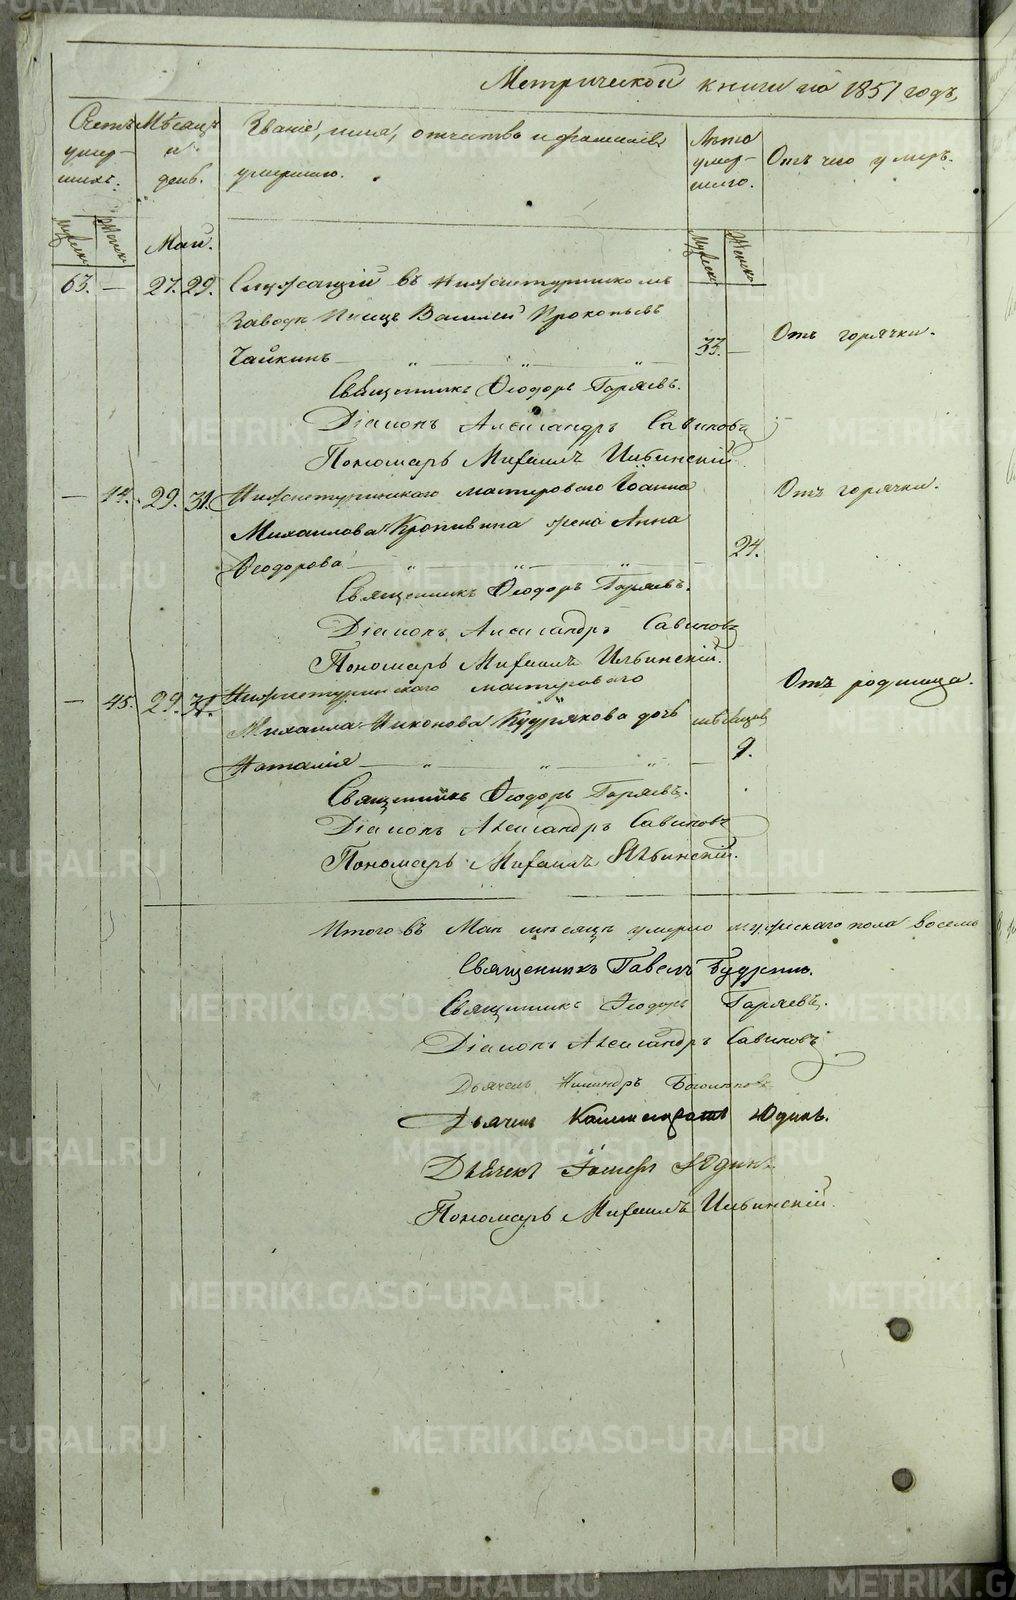 Метрической книги на 1851 годъ,
Счетъ умер-шихъ.
Мѣсяцъ и день.
Званіе, имя, отчество и фамилія умершаго.
Лѣто умер-шаго.
Отъ чего умеръ.
Мужеск. Женск.
Май.
Мужеск. Женск.
63. — 27. 29. Служащій въ Нижнетуринскомъ
Заводѣ Василій Прокопьевъ
Чайкинъ — „ — „ — „ 33. — Отъ горячки.
Священникъ Ѳеодоръ Горяевъ.
Діаконъ Александръ Савиновъ
Пономарь Михаилъ Ильинскій
— 44. 29. 31. Нижнетуринскаго мастероваго Іоанна Отъ горячки.
Михаилова Кропивина жена Анна
Ѳеодорова — „ — „ — „ — 24.
Священникъ Ѳеодоръ Горяевъ.
Діаконъ Александръ Савиновъ
Пономарь Михаилъ Ильинскій.
— 45. 29. 31. Нижнетуринскаго мастероваго Отъ родимца.
Михаила Никонова Кудрякова дочь мѣсяцов
Наталія — „ — „ — „ — 9.
Священникъ Ѳеодоръ Горяевъ.
Діаконъ Александръ Савиновъ
Пономарь Михаилъ Ильинскій.
Итого въ Маѣ мѣсяцѣ умерло мужескаго пола восемь
Священникъ Павелъ
Священникъ Ѳеодоръ Горяевъ.
Діаконъ Александръ Савиновъ
Дьячекъ
Дьячекъ Юдинъ.
Дьячекъ Юдинъ
Пономарь Михаилъ Ильинскій.
METRIKI.GASO-URAL.RU